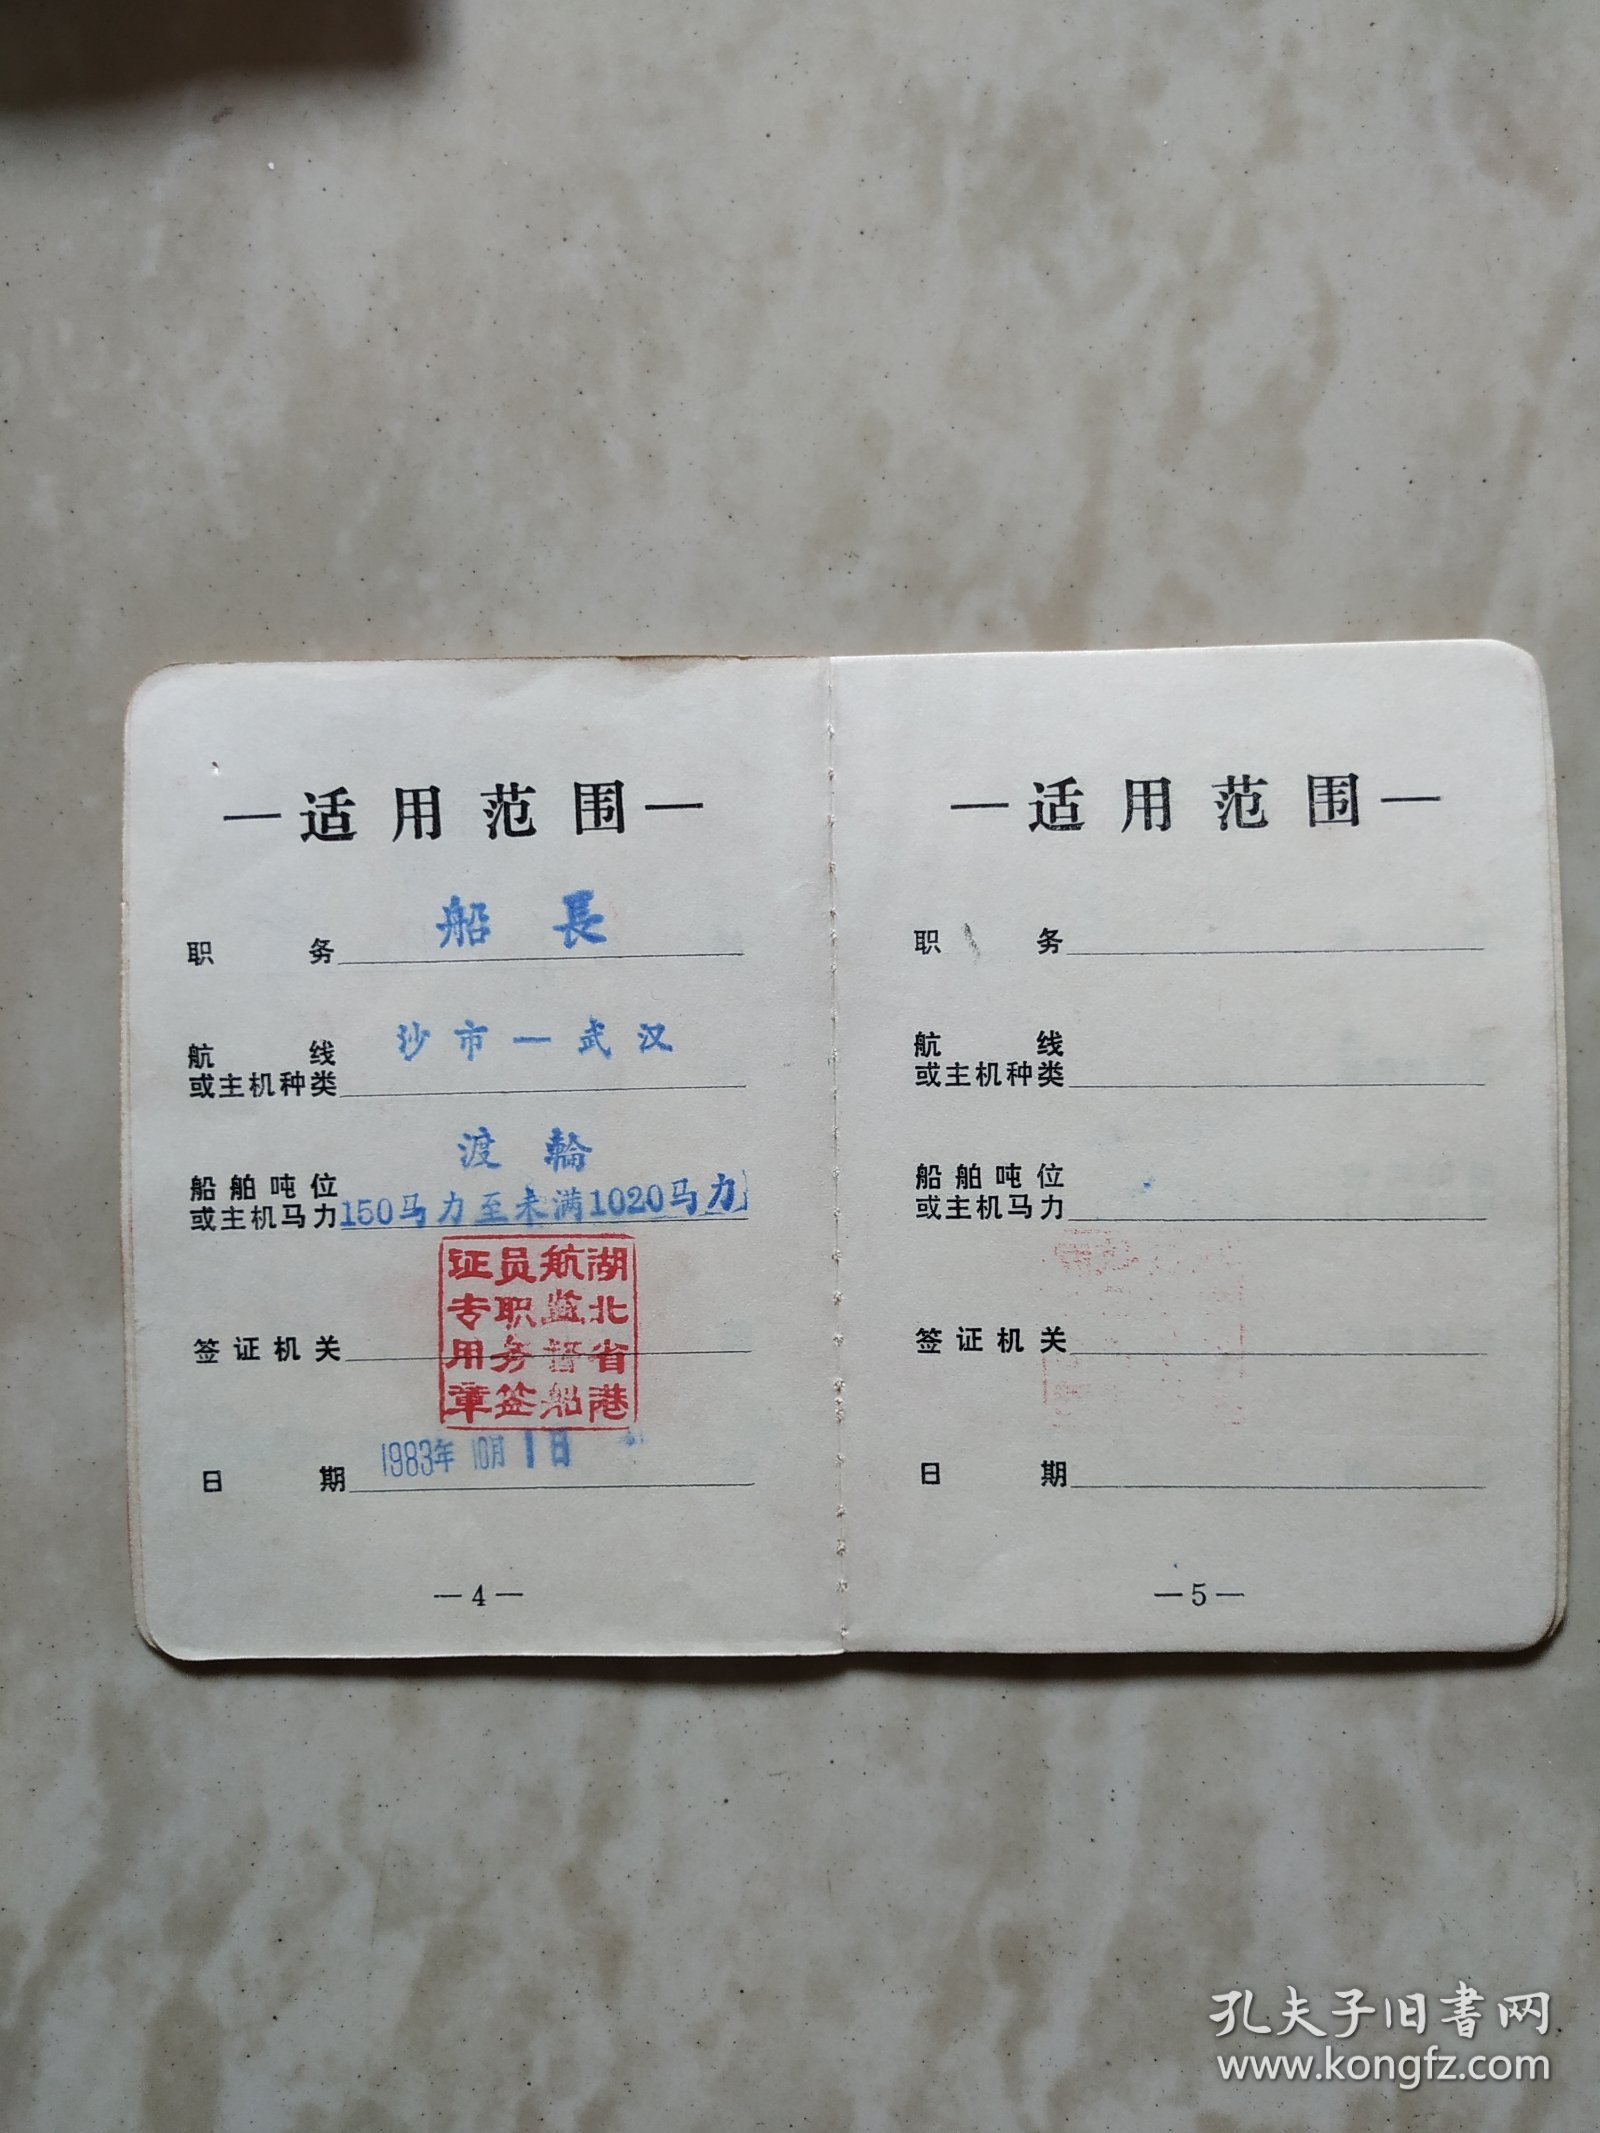 —适用范围—
职务 船長
航线
或主机种类 沙市—武汉
渡輪
船舶吨位
或主机马力 150马力至未满1020马力
签证机关
湖北省港
航监督船
员职务签
证专用章
日期 1983年10月1日
—4—
—适用范围—
职务
航线
或主机种类
船舶吨位
或主机马力
签证机关
日期
—5—
孔夫子旧书网
www.kongfz.com